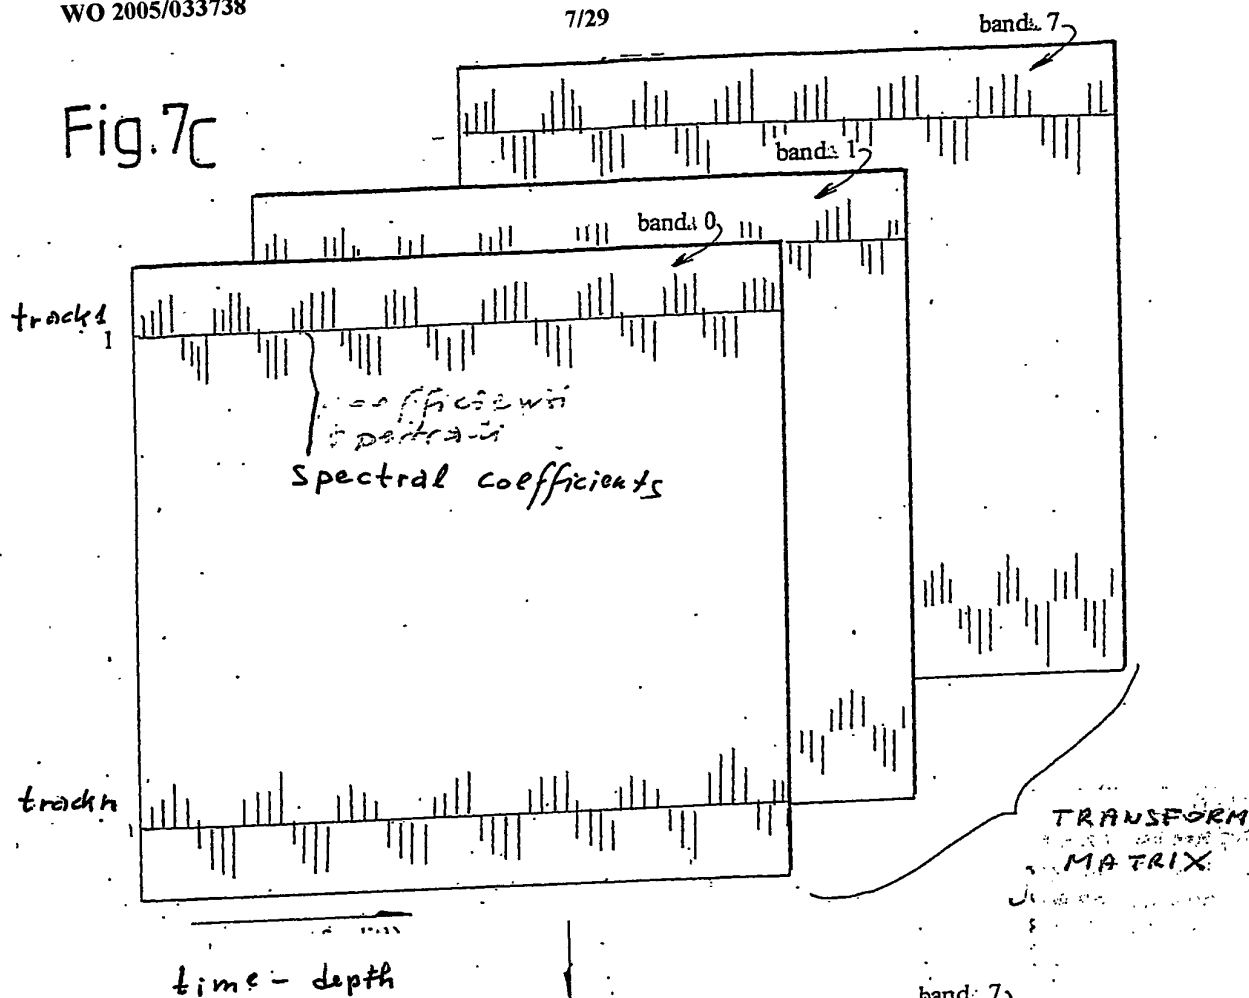 WO 2005/033738
7/29
band 7
Fig.7C
band 1
band 0
track1
1
spectral coefficients
trackn
1
TRANSFORM
MATRIX
time - depth
band 7